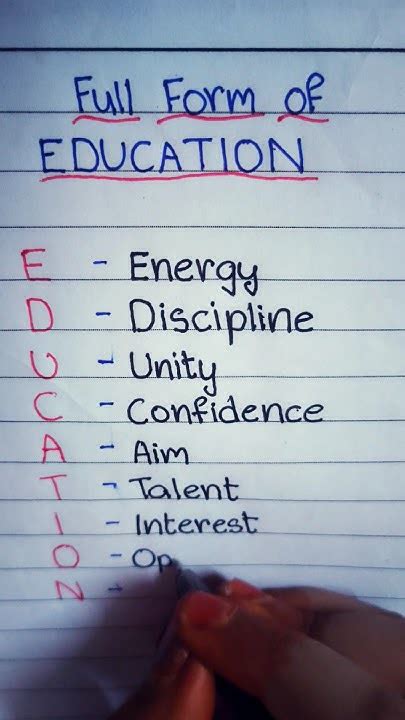 Full Form of
EDUCATION
E - Energy
D - Discipline
U - Unity
C - Confidence
A - Aim
T - Talent
I - Interest
O - Op
N -